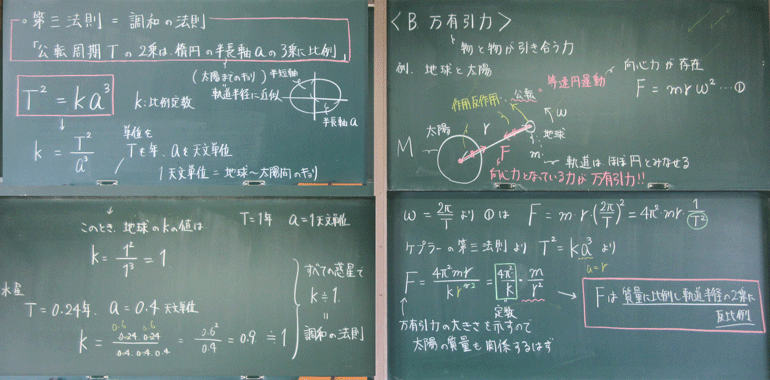 ○第三法則 = 調和の法則
「公転周期Tの2乗は、楕円の半長軸aの3乗に比例」
(太陽までのキョリ)
軌道半径に近似
半短軸
半長軸a
T² = ka³
k:比例定数
k = T²/a³
単位を
Tを年、aを天文単位
1天文単位 = 地球〜太陽間のキョリ
このとき、地球のkの値は
T=1年 a=1天文単位
k = 1²/1³ = 1
水星
T = 0.24年、a = 0.4 天文単位
k = 0.24・0.24/0.4・0.4・0.4 = 0.6²/0.4 = 0.9 ≒ 1
0.6 0.6
すべての惑星で
k≒1.
=
調和の法則
〈B 万有引力〉
物と物が引き合う力
例. 地球と太陽
向心力が存在
等速円運動
F = mrω² …①
作用反作用
公転
ω
太陽
r
地球
M
m
F
軌道はほぼ円とみなせる
向心力となっている力が万有引力!!
ω = 2π/T より ①は F = m・r・(2π/T)² = 4π²・mr・1/T²
ケプラーの第三法則より T² = ka³ より
a=r
F = 4π²mr/kr³ = 4π²/k・m/r²
定数
Fは質量に比例し軌道半径の2乗に
反比例
万有引力の大きさを示すので
太陽の質量も関係するはず